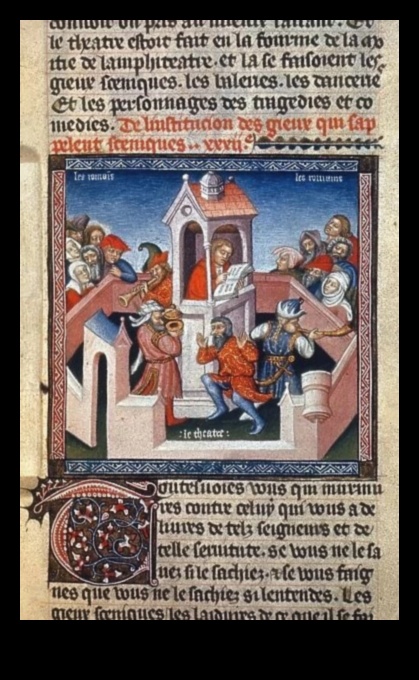 le theatre estoit fait en la fourme de la moi
tie de lamphiteatre. et la se faisoient les
gieux sceniques. les baleries. les danceries
Et les personnages des tragedies et co
medies. De linstitucion des gieux qui sap
pelent sceniques .. xxxij.
les romains les romains
: le theatre :
Escoutes vous qui murmu
res contre celuy qui vous a de
liures de telz seigneurs et de
telle seruitute. se vous ne le sa
uez si le sachiez. & se vous faig
nes que vous ne le sachiez si lentendes. Les
gieux sceniques les laidures de ce que il se fai